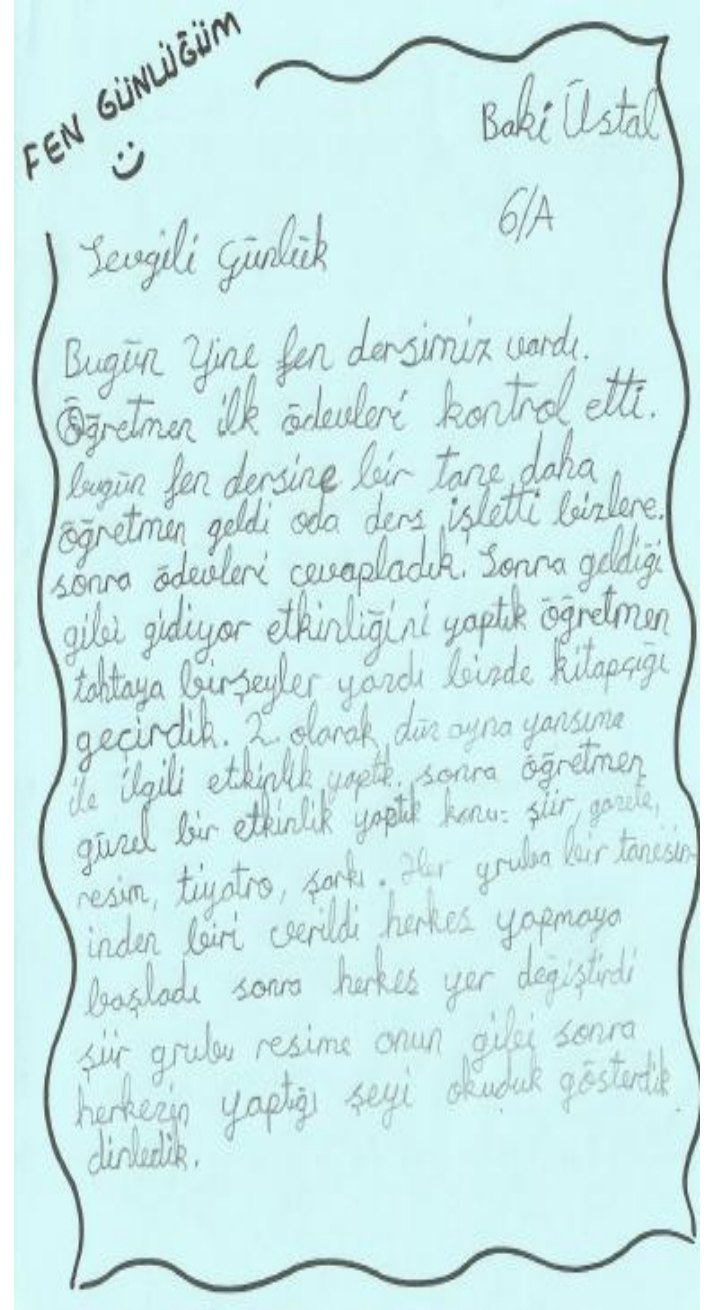 FEN GÜNLÜĞÜM
Baki Üstal
6/A
Sevgili Günlük
Bugün Yine fen dersimiz vardı.
Öğretmen ilk ödevleri kontrol etti.
bugün fen dersine bir tane daha
öğretmen geldi oda ders işletti bizlere.
sonra ödevleri cevapladık. Sonra geldiği
gibi gidiyor etkinliğini yaptık öğretmen
tahtaya birşeyler yazdı bizde kitapçığı
geçirdik. 2. olarak düz ayna yansıma
ile ilgili etkinlik yaptık. sonra öğretmen
güzel bir etkinlik yaptık konu: şiir, gazete,
resim, tiyatro, şarkı. Her gruba bir tanesin-
inden biri verildi herkes yapmaya
başladı sonra herkes yer değiştirdi
şiir grubu resime onun gibi sonra
herkezin yaptığı şeyi okuduk gösterdik
dinledik.